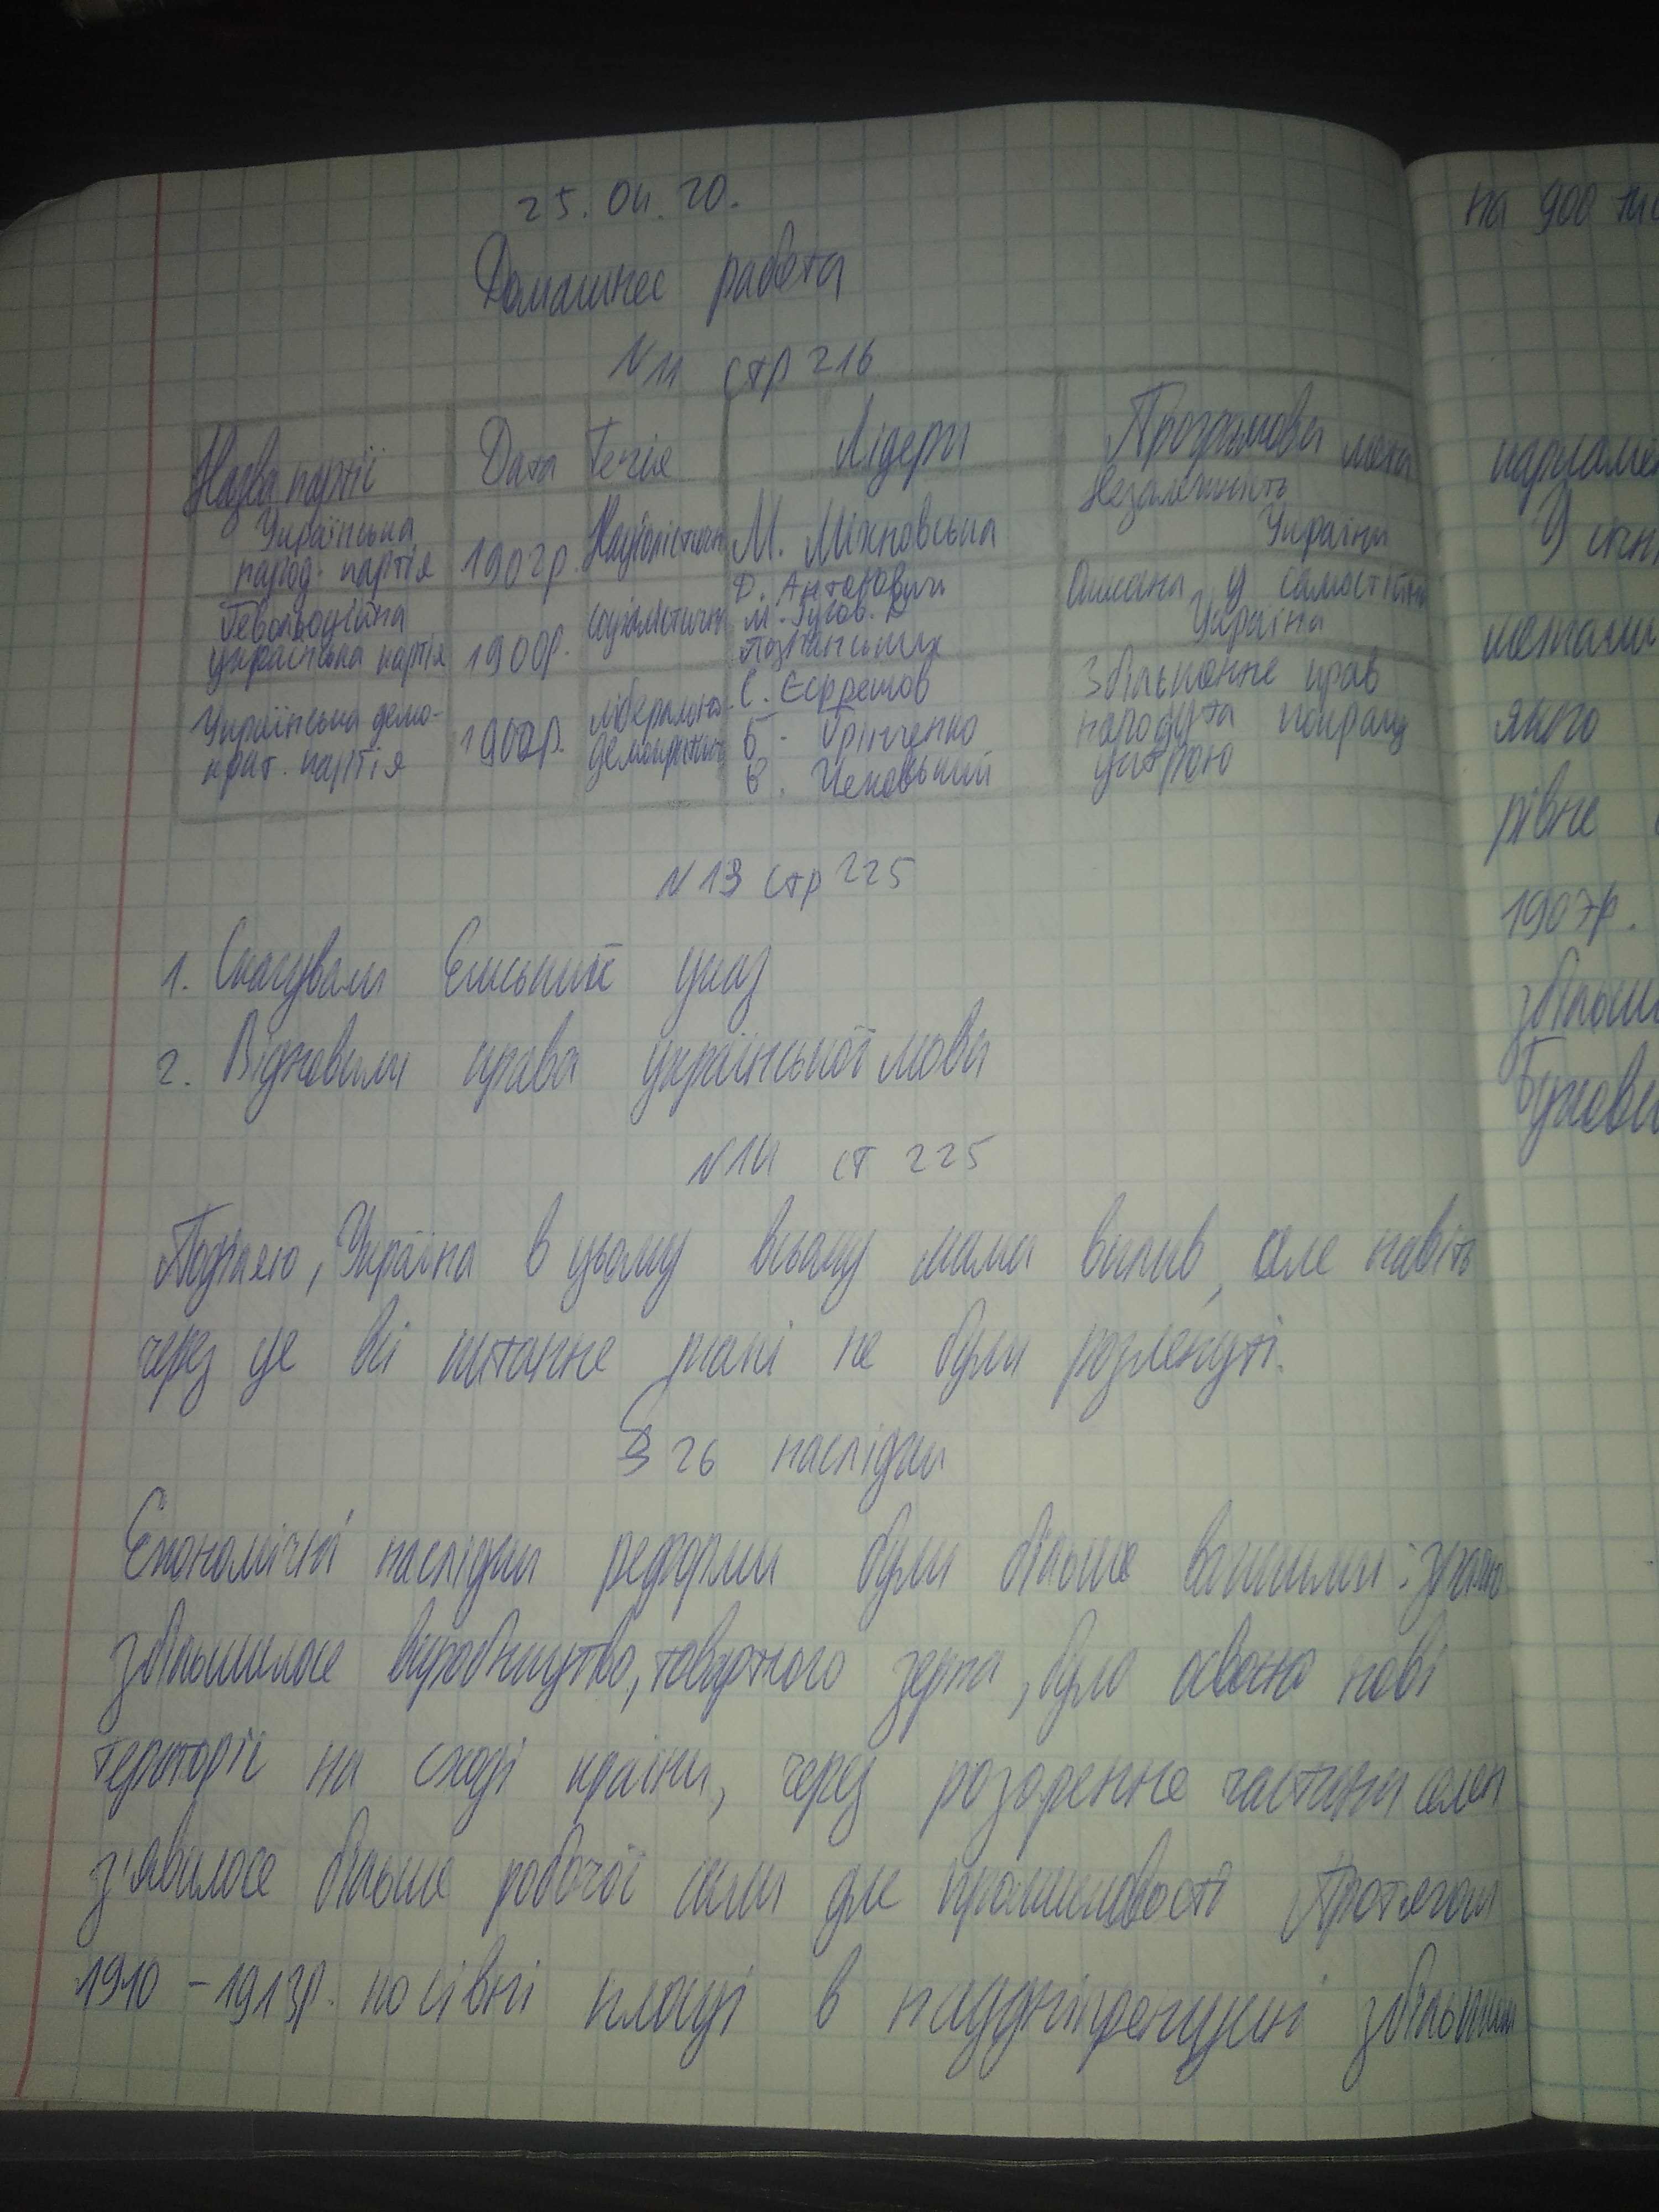 25.04.20.
Домашнес работа
N11 стр 216
Назва партії Дата Течіє Лідери Програмова мета
Українська народ. партія 1902р. Націоністичн М. Міхновська Незалежність України
Революційна українська партія 1900р. соціалістичн Д. Антонович М. Русов. Д Познанських у самостійна Україна
Українська демо-крат. партія 1900р. ліберально-демократич С. Єфремов Б. Грінченко В. Чеховський Збільшенне прав народу та покращ устрою
N13 стр 225
1. Скасували Емський указ
2. Відновили права української мови
N14 ст 225
Україна в цьому всьому мала вплив, але навіть
через це всі питанне не були розгленуті.
§ 26 наслідки
Економічні наслідки реформи були більше важкими: значно
збільшилосе виробництво, товарного зерна, було освоєно нові
територіє на сході країни, через розоренне частини селен
з'явилосе більше робочої сили дле промисловості Протягом
1910 - 1913р. посівні площі в наддніпренщині збільшили
на 900 тис
парламен
У січн
якого
рівне
1907р.
збільши
Букови